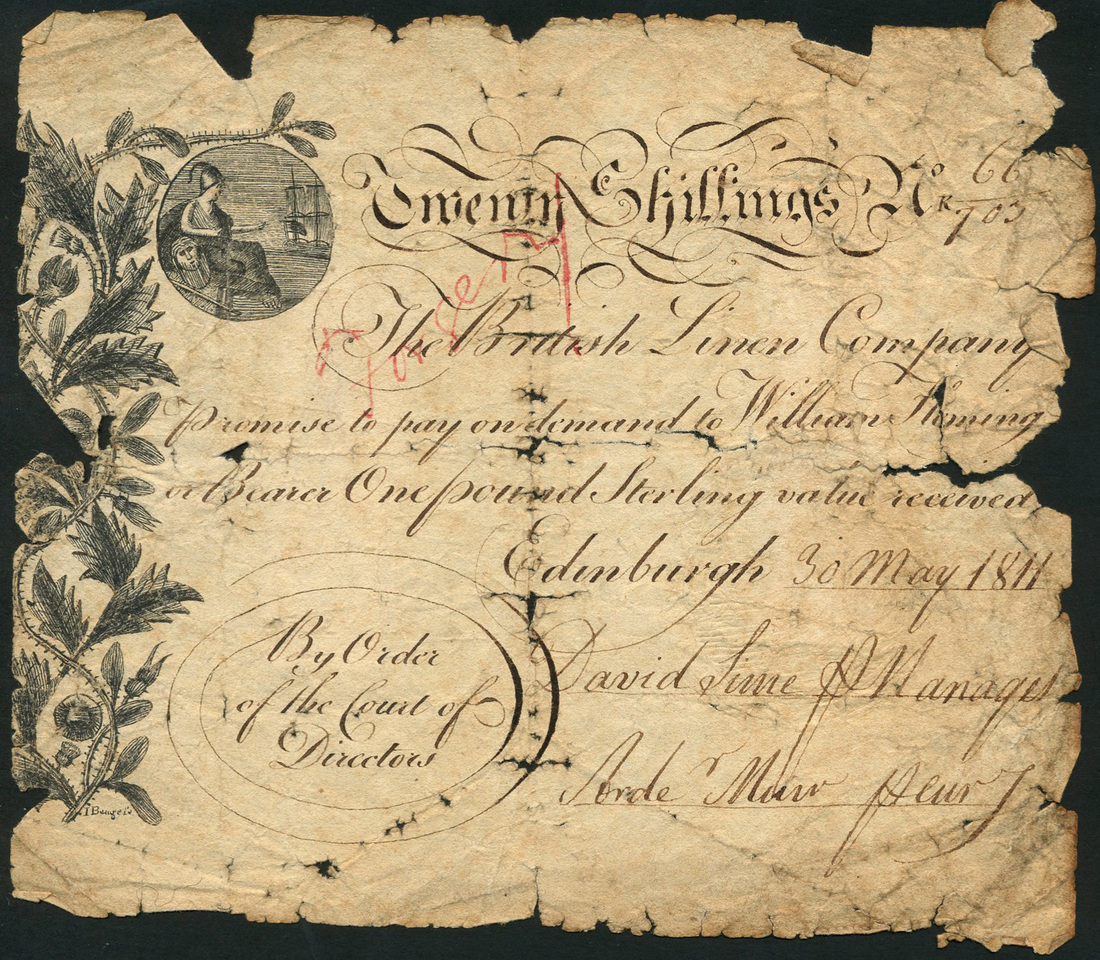 Twenty Shillings No K 66/703
Forgery
The British Linen Company
Promise to pay on demand to William Fleming
or Bearer One pound Sterling value received
Edinburgh 30 May 1811
By Order
of the Court of
Directors
David Sime Manager